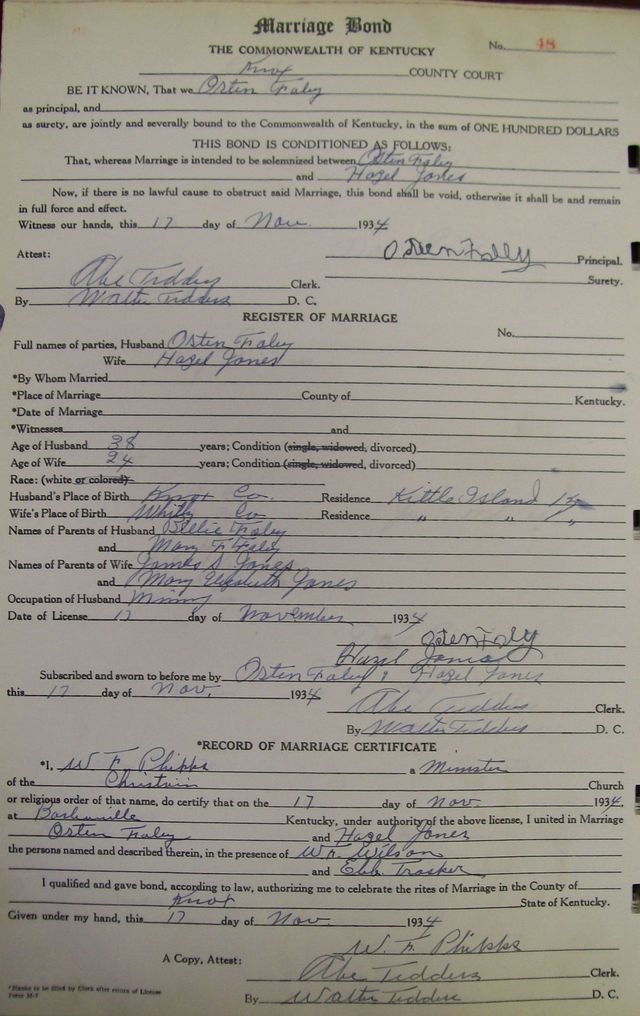 Marriage Bond
THE COMMONWEALTH OF KENTUCKY
No. 48
Knox COUNTY COURT
BE IT KNOWN, That we Osten Faley
as principal, and
as surety, are jointly and severally bound to the Commonwealth of Kentucky, in the sum of ONE HUNDRED DOLLARS
THIS BOND IS CONDITIONED AS FOLLOWS:
That, whereas Marriage is intended to be solemnized between Osten Faley
and Hazel Jones
Now, if there is no lawful cause to obstruct said Marriage, this bond shall be void, otherwise it shall be and remain
in full force and effect.
Witness our hands, this 17 day of Nov. 1934
Osten Fally Principal.
Attest:
Surety.
Abe Tidders Clerk.
By Walter Tidders D. C.
REGISTER OF MARRIAGE
No.
Full names of parties, Husband Osten Faley
Wife Hazel Jones
*By Whom Married
*Place of Marriage County of Kentucky.
*Date of Marriage
*Witnesses and
Age of Husband 38 years; Condition (single, widowed, divorced)
Age of Wife 24 years; Condition (single, widowed, divorced)
Race: (white or colored)
Husband's Place of Birth Knox Co. Residence Kittle Island Ky
Wife's Place of Birth Whitly Co Residence " " "
Names of Parents of Husband Billie Faley
and Mary F Faley
Names of Parents of Wife James S Jones
and Mary Elizabeth Jones
Occupation of Husband Mining
Date of License 17 day of November 1934
Osten Faly
Hazel Jones
Subscribed and sworn to before me by Osten Faley & Hazel Jones
this 17 day of Nov. 1934
Abe Tidders Clerk.
By Walter Tidders D. C.
*RECORD OF MARRIAGE CERTIFICATE
*I, W F Phipps a Minister
of the Christain Church
or religious order of that name, do certify that on the 17 day of Nov. 1934,
at Kentucky, under authority of the above license, I united in Marriage
Osten Faley and Hazel Jones
the persons named and described therein, in the presence of Wilson
and
I qualified and gave bond, according to law, authorizing me to celebrate the rites of Marriage in the County of
Knox State of Kentucky.
Given under my hand, this 17 day of Nov. 1934
W. F. Phipps
A Copy, Attest:
Abe Tidders Clerk.
By Walter Tidders D. C.
*Blanks to be filled by Clerk after return of License
Form M-7